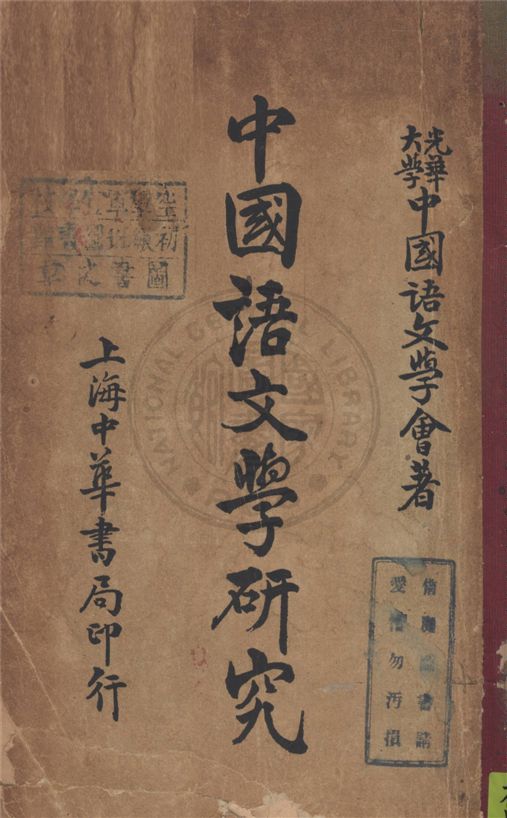 光華大學中國語文學會著
中國語文學研究
上海中華書局印行
書請
愛惜勿汚損